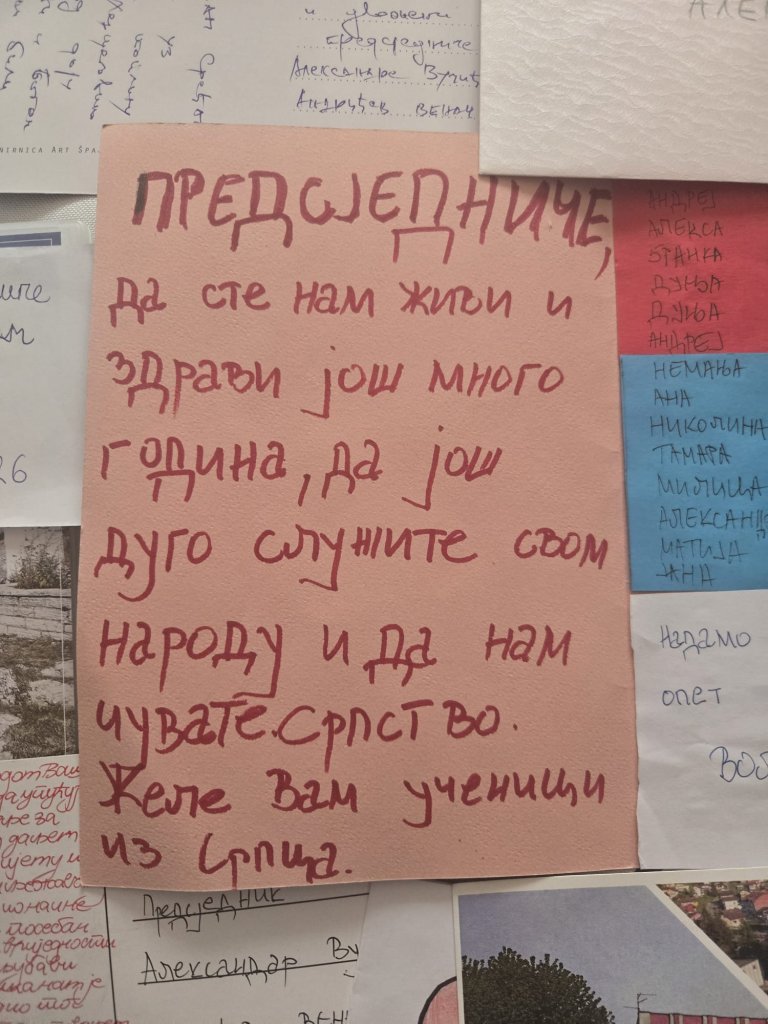 и уважени
председниче
Александре Вучић
Андрићев ВЕНАЦ
АЛЕ
NIRNICA ART SPA
ПРЕДСЈЕДНИЧЕ,
да сте нам живи и
здрави још много
година, да још
дуго служите свом
народу и да нам
чувате.Српство.
Желе Вам ученици
из Српца.
АНДРЕЈ
АЛЕКСА
СТАНКА
ДУЊА
ДУЊА
АНДРЕЈ
НЕМАЊА
АНА
НИКОЛИНА
ТАМАРА
МИЛИЦА
АЛЕКСАНД
МАТИЈА
АНА
Надамо
опет
ВОЉ
26
Предсједник
Александар Ву
ВЕН